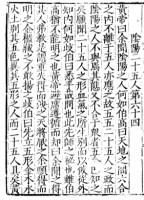 陰陽二十五人第六十四
黃帝曰余聞陰陽之人何如伯高曰天地之間六合
之內不離于五人亦應之故五五二十五人之政而
陰陽之人不與焉其態又不合于眾者五余已知之
矣願聞二十五人之形血氣之所生別而以候從外
知內何如岐伯曰悉乎哉問也此先師之祕也雖伯
高猶不能明之也黃帝避席遵循而却曰余聞之得
其人弗教是謂重失得而洩之天將厭之余願得而
明之金櫃藏之不敢揚之岐伯曰先立五形金木水
火土別其五色異其五形之人而二十五人具矣黃